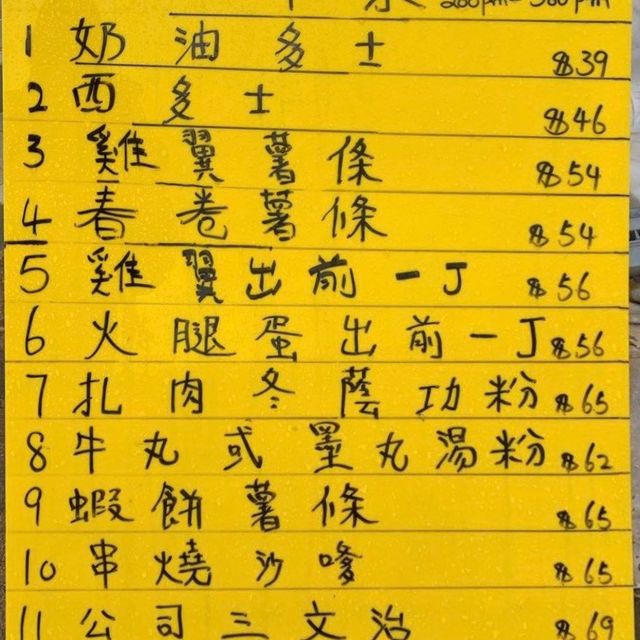 1 奶油多士 $39
2 西多士 $46
3 雞翼薯條 $54
4 春卷薯條 $54
5 雞翼出前一丁 $56
6 火腿蛋出前一丁 $56
7 扎肉冬蔭功粉 $65
8 牛丸或墨丸湯粉 $62
9 蝦餅薯條 $65
10 串燒沙嗲 $65
11 公司三文治 $69